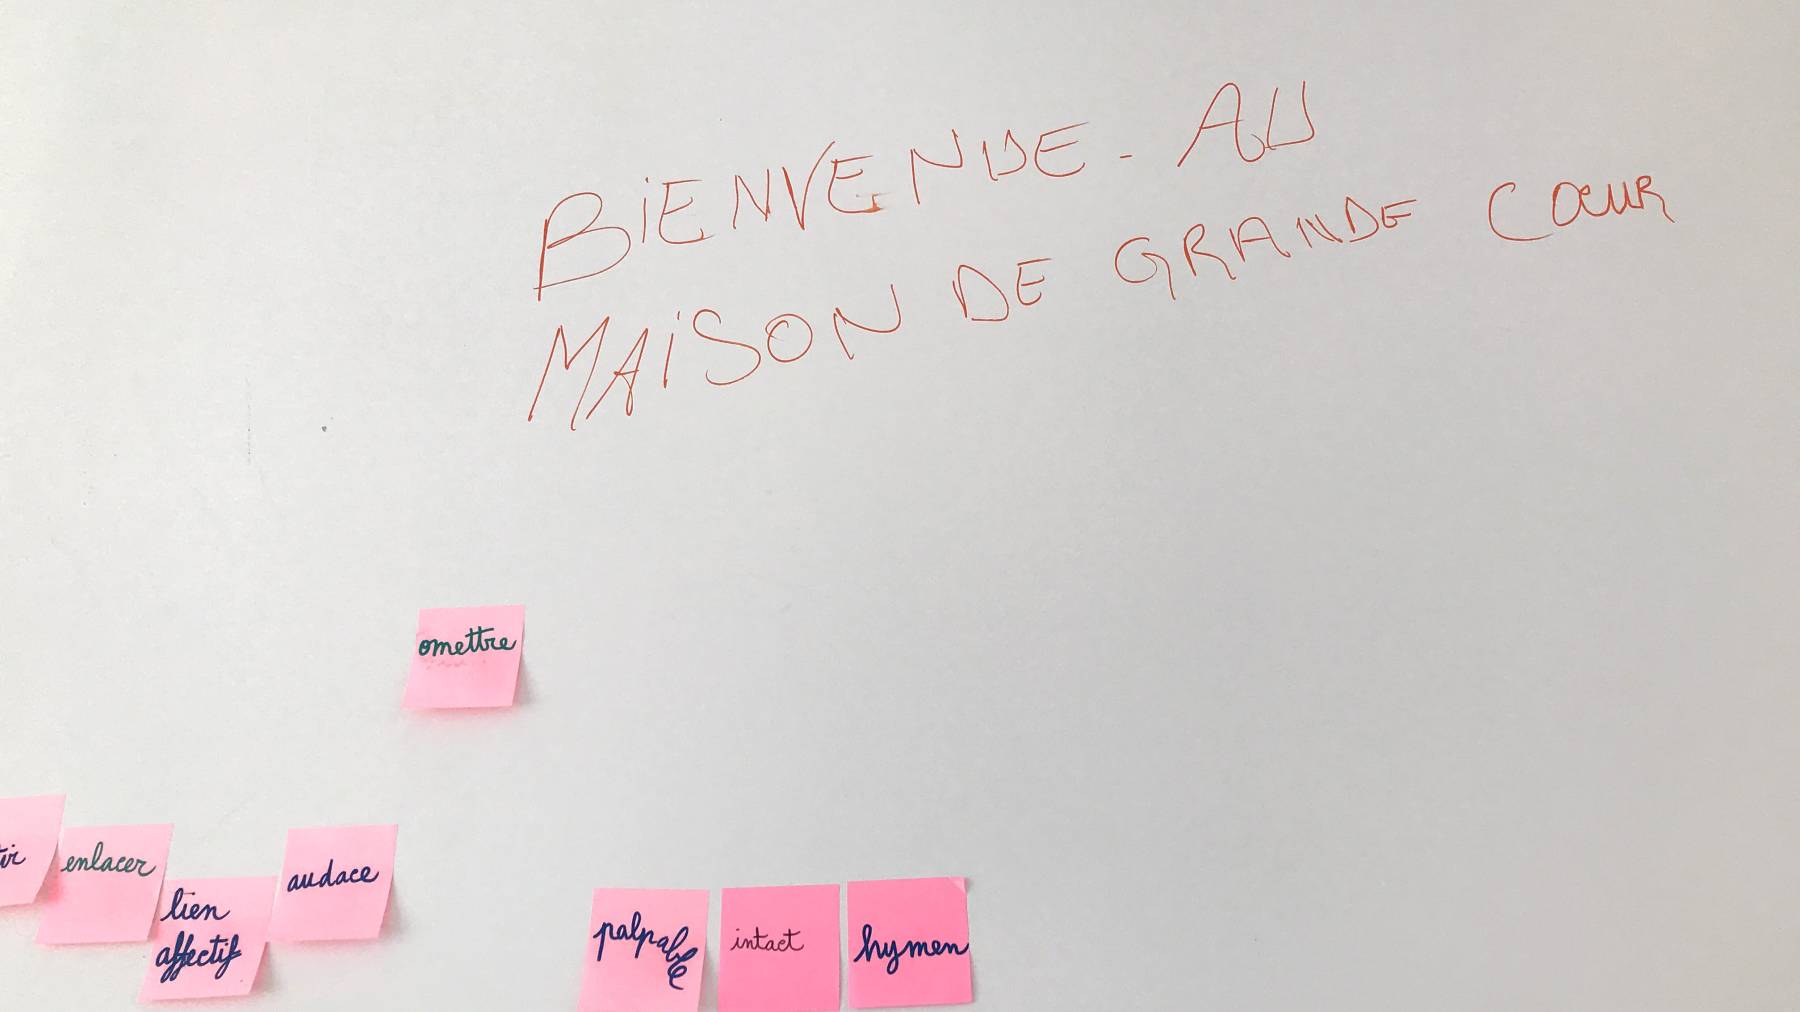 BIENVENUE - AU
MAISON DE GRANDE CŒUR
omettre
enlacer
lien
affectif
audace
palpable
intact
hymen